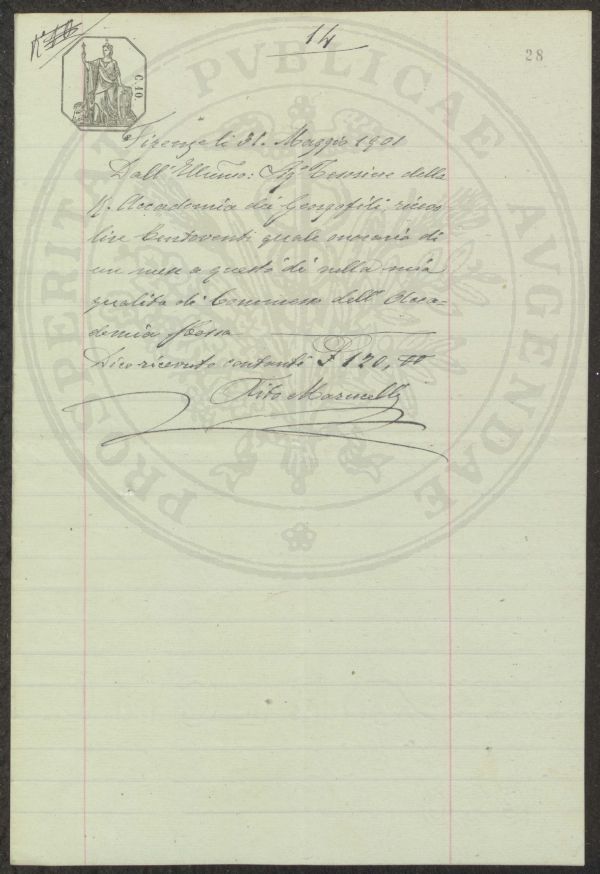 14
28
C. 10
Firenze li 31. Maggio 1901
Dall' Illmo: Sigr Cassiere della
R. Accademia dei Georgofili, ricevo
lire Centoventi quale onorario di
un mese a questo dì nella mia
qualità di Commesso dell' Acca-
demia stessa
Dico ricevuto contanti £ 120,00
Tito Marucelli
PROSPERITATI PVBLICAE AVGENDAE